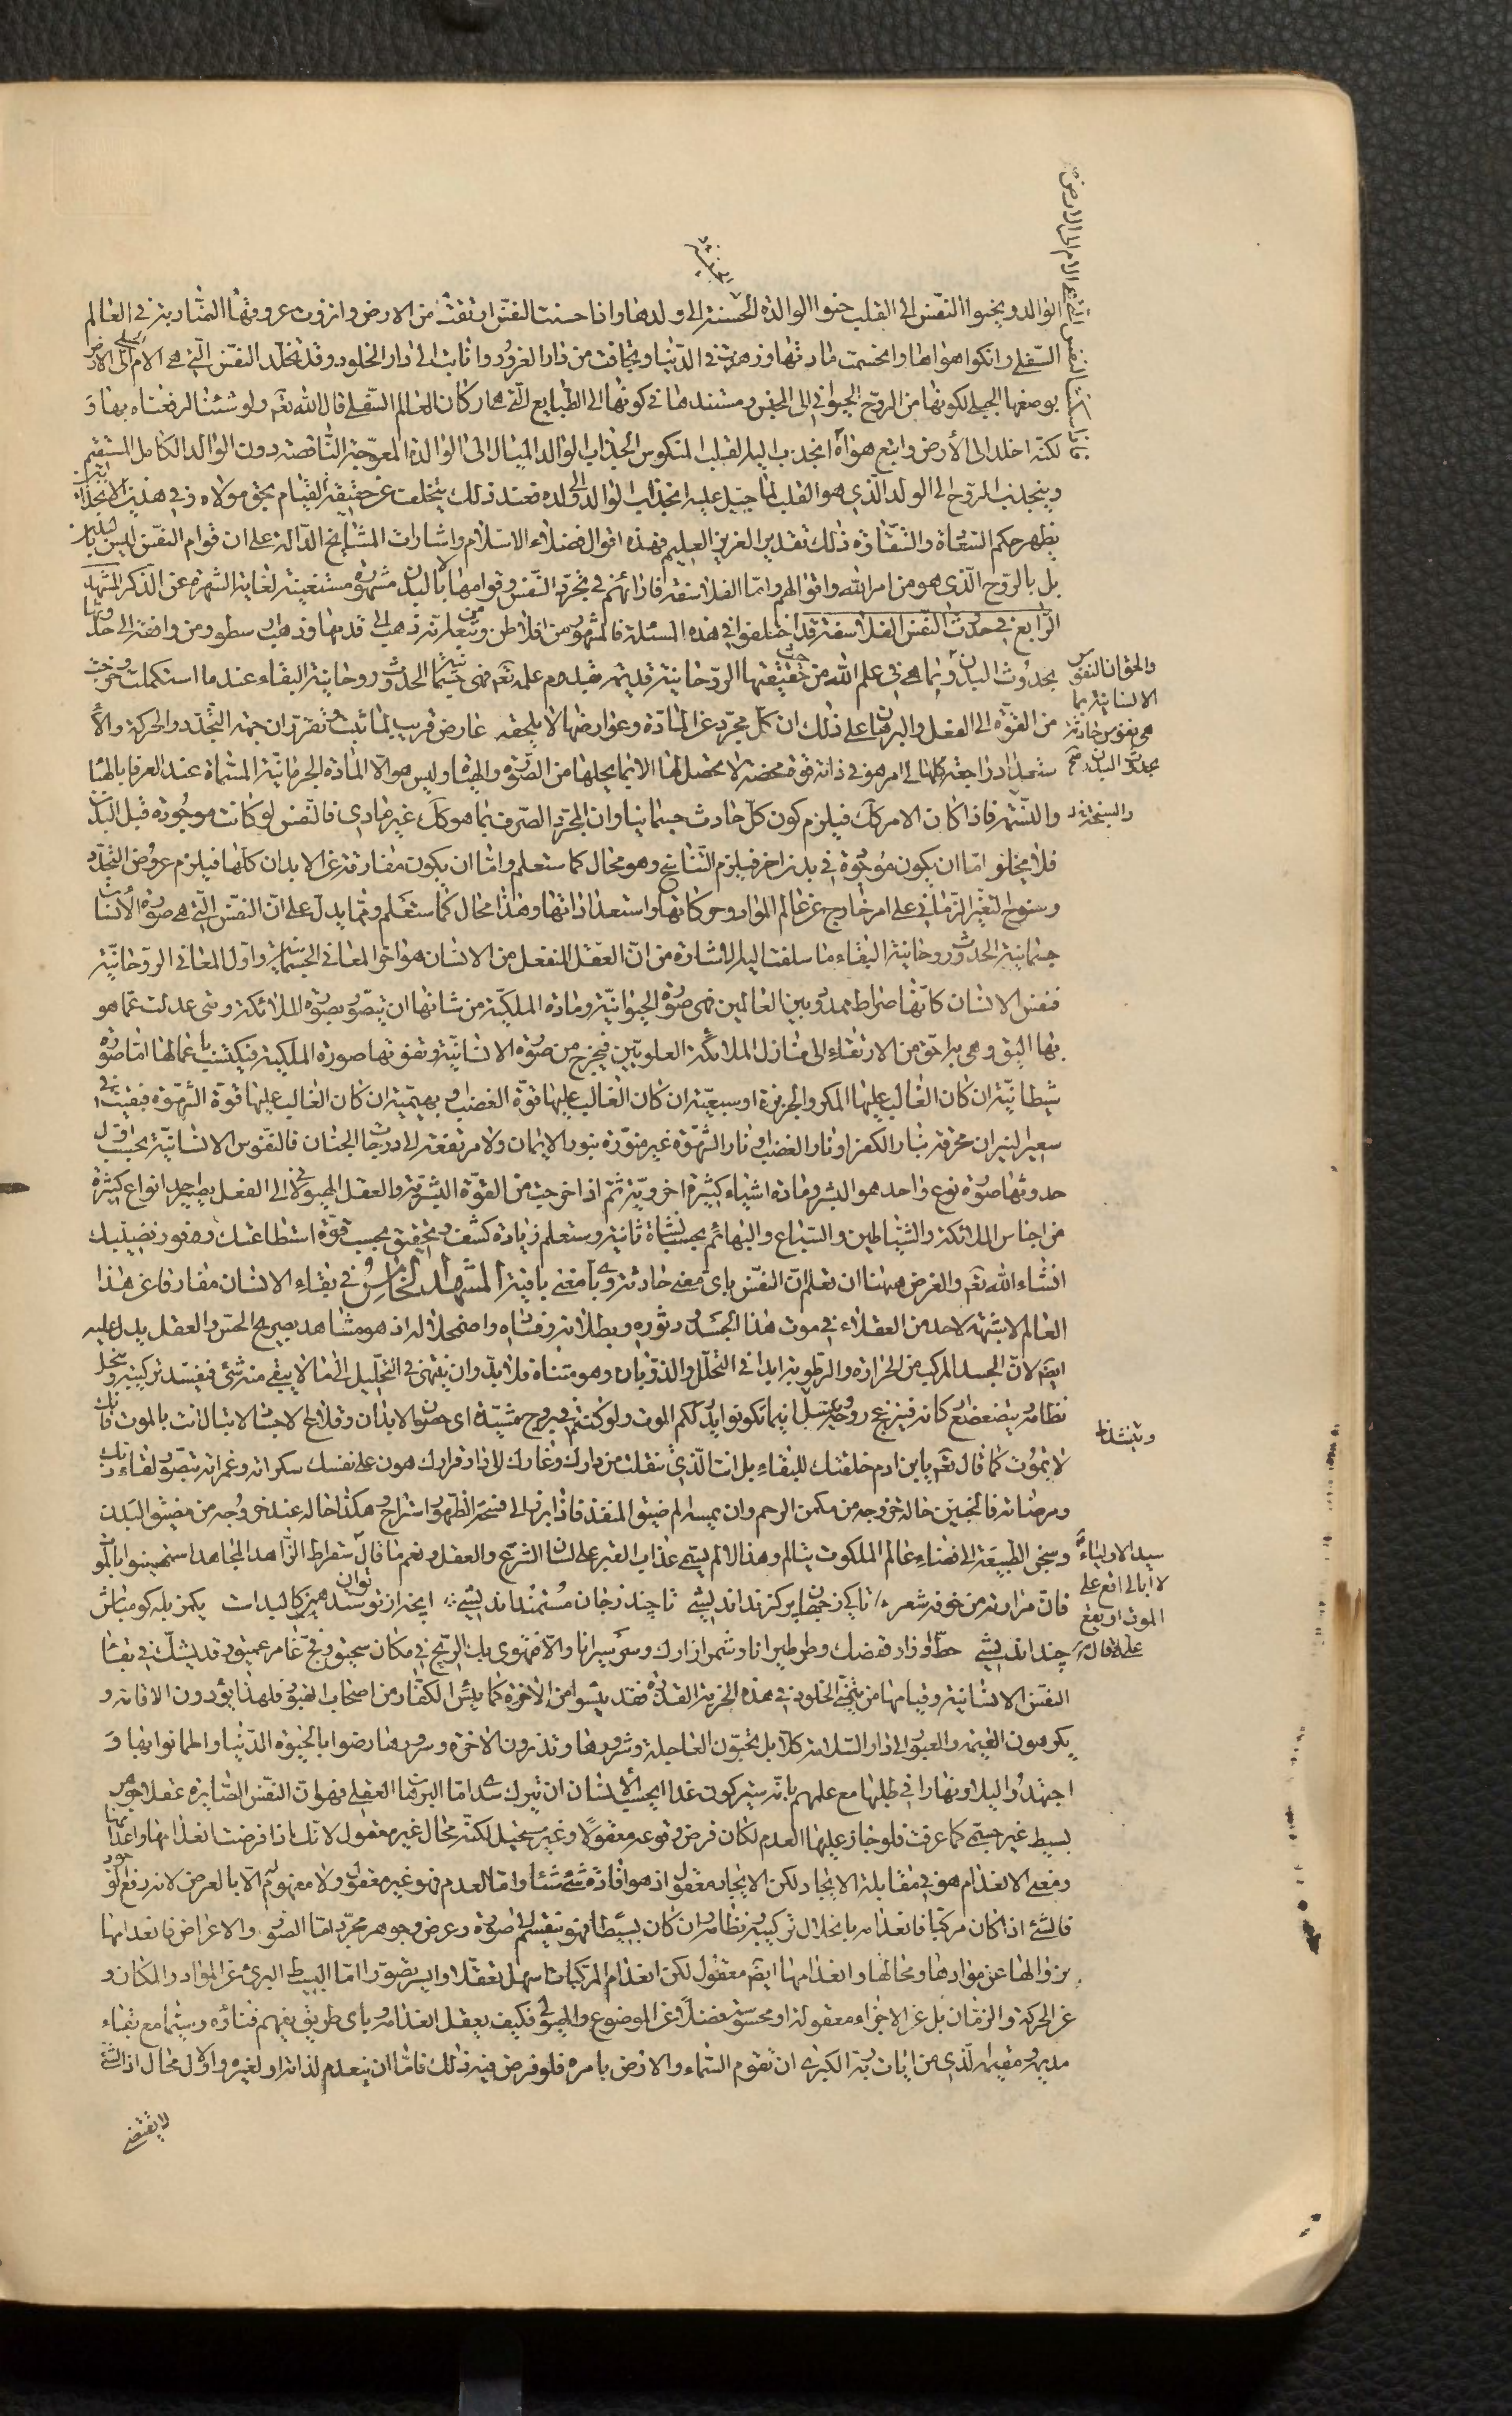 الوالد ويحنوا النفس الى القلب حنوا الوالدة الحسنة الى ولدها واذا حسنت النفس ارتقت من الارض وانزوت عروقها المتاربة في العالم
السفلي وانكوا هواها وانحسمت مادتها وزهدت في الدنيا وتجافت من دار الغرور وانابت الى دار الخلود وقد تخلد النفس التي هي الام الى الارض
بوصفها الجبلي لكونها من الروح الحيواني الى الجنس ومستندها في كونها الى الطبايع التي هي اركان العالم السفلي قال الله تعه ولو شئنا لرفعناه بها و
لكنه اخلد الى الأرض واتبع هواه انجذب اليها القلب المنكوس انجذاب الوالد الميال الى الوالدة المعوجة الناقصة دون الوالد الكامل المستقيم
وينجذب الروح الى الولد الذي هو القلب لما جبل عليه انجذاب الوالد الى ولده فعند ذلك يتخلف عن حقيقة القيام بحق مولاه وفي هذين الانجذابين
يظهر حكم السعادة والشقاوة ذلك تقدير العزيز العليم فهذه اقوال فضلاء الاسلام واشارات المشايخ الدالة على ان قوام النفس ليس بالبدن
بل بالروح الذي هو من امر الله واقوالهم واما الفلاسفة فارائهم في تجرد النفس وقوامها لا بالبدن مشهورة مستغنية لغاية الشهرة عن الذكر المشهد
الرابع في حدوث النفس الفلاسفة قد اختلفوا في هذه المسئلة فالمشهور من افلاطن ومن تبعه انه ذهب الى قدمها وذهب ارسطو ومن وافقه الى حدوثها
بحدوث البدن وانما هي في علم الله من حيث حقيقتها الروحانية قديمة بقدم علمه تعه فهي جسمانية الحدوث روحانية البقاء عندما استكملت وخرجت
من القوة الى الفعل والبرهان على ذلك ان كل مجرد عن المادة وعوارضها لا يلحقه عارض قريب لما ثبت وتقرر ان جهة التجدد والحركة والا
ستعداد راجعة كلها الى امر هو في ذاته قوة محضة لا تحصل لها الا بما يحلها من الصورة والهيئة وليس هو الا المادة الجرمانية المسماة عند العرفا بالهبا
والسنخة فاذا كان الامر كك فيلزم كون كل حادث جسمانيا وان المجرد الصرف بما هو كك غير مادي فالنفس لو كانت موجودة قبل البدن
فلا يخلو اما ان يكون موجودة في بدن اخر فيلزم التناسخ وهو محال كما ستعلم واما ان يكون مفارقة عن الابدان كلها فيلزم عروض التجدد
وسنوح التغير الزماني على امر خارج عن عالم المواد وحركاتها واستعداداتها وهذا محال كما ستعلم ومما يدل على ان النفس التي هي صورة الانسان
جسمانية الحدوث روحانية البقاء ما سلفت اليه الاشارة من ان العقل المنفعل من الانسان هو اخر المعاني الجسمانية واول المعاني الروحانية
فنفس الانسان كانها صراط ممدود بين العالمين فهي صورة الحيوانية ومادة الملكية من شانها ان يتصور بصورة الملائكة ومتى عدلت عما هو
بها اليق وهي به احق من الارتقاء الى منازل الملائكة العلويين فيخرج من صورة الانسانية وتفوتها صورة الملكية فيكتسب باعمالها اما صورة
شيطانية ان كان الغالب عليها المكر والجربزة او سبعية ان كان الغالب عليها قوة الغضب او بهيمية ان كان الغالب عليها قوة الشهوة فبقيت في
سعير النيران محرقة بنار الكفر او نار الغضب او نار الشهوة غير منورة بنور الايمان ولا مرتفعة الى درجات الجنان فالنفوس الانسانية بحسب اول
حدوثها صورة نوع واحد هو البشر ومادة اشياء كثيرة اخروية ثم اذا خرجت من القوة البشرية والعقل الهيولاني الى الفعل يصير انواع كثيرة
من اجناس الملائكة والشياطين والسباع والبهائم بحسب نشاة ثانية وستعلم زيادة كشف وتحقيق بحسب قوة استطاعتك وفور نصيبك
انشاء الله تعه والغرض ههنا ان تعلم ان النفس باي معنى حادثة وباي معنى باقية المشهد الخامس في بقاء الانسان مفارقا عن هذا
العالم لا شبهة لاحد من العقلاء في موت هذا الجسد ودثوره وبطلانه وفنائه واضمحلاله اذ هو مشاهد بصريح الحس والعقل يدل عليه
ايضا لان الجسد المركب من الحرارة والرطوبة ابدا في التحلل والذوبان وهو متناه فلا بد وان ينتهي في التحليل الى ما لا يبقى منه شئ فيفسد تركيبه وينحل
نظامه يتضعضع كانه فينزعج روحه عنه اينما تكونوا يدرككم الموت ولو كنتم في بروج مشيدة اي حصون الابدان وقلاع الاجساد لا تبال انت بالموت فانك
لا تموت كما قال تعه يا بن ادم خلقتك للبقاء بل انت الذي تنقلت من دارك وغارك الى دار قرارك هون على نفسك سكراته وغمراته بتصور لقاء ربك
ومرضاته فالجنين حالة خروجه من مكمن الرحم وان يمسه الم ضيق المنفذ فاذا برز الى فسحة الظهور استراح وهكذا حاله عند خروجه من مضيق البدن
وسجن الطبيعة الى فضاء عالم الملكوت يتالم وهذا الالم يسمى عذاب القبر على لسان الشرع والعقل ونعم ما قال سقراط الزاهد المجاهد استهينوا بالموت
فان مرارته من خوفه شعر تا كي ز خيال هر كزند انديشي تا چند ز جان مستمند انديشي اينچه از تو توان ستد همين كالبد است يكمزبله كو مباش
چند انديشي حط او زار قفصك وطر طيرانا وشمر ازارك وسر سيرانا والا فتهوى بك الريح في مكان سحيق وفج غامر عميق وقد يشك في بقاء
النفس الانسانية وقيامها من يتمنى الخلود في هذه الخربة القذرة فقد يئسوا من الاخرة كما يئس الكفار من اصحاب القبور فلهذا يؤدون الاقامة و
يكرهون القيمة والعبور الى دار السلامة كلا بل تحبون العاجلة وشرورها وتذرون الاخرة وسرورها رضوا بالحيوة الدنيا واطمانوا بها و
اجتهدوا ليلا ونهارا في طلبها مع علمهم بانه سيتركون غدا ايحسب الانسان ان يترك سدى اما البرهان العقلي فهو ان النفس الصايرة عقلا جوهر
بسيط غير جسمي كما عرفت فلو جاز عليها العدم لكان فرض وقوعه معقولا وغير مستحيل لكنه محال غير معقول لانك اذا فرضت انعدامها واعدامها
ومعنى الانعدام هو في مقابلة الايجاد لكن الايجاد معقول اذ هو افادة شئ شيئا واما العدم فهو غير معقول ولا مفهوم الا بالعرض لانه رفع الوجود
فالشئ اذا كان مركبا فانعدامه بانحلال تركيبه نظامه وان كان بسيطا فهو ينقسم الى صورة وعرض وجوهر مجرد اما الصور والاعراض فانعدامها
بزوالها عن موادها ومحالها وانعدامها ايضا معقول لكن انعدام المركبات اسهل تعقلا وايسر تصورا اما البسيط البرئ عن المواد والمكان و
عن الحركة والزمان بل عن الاجزاء معقولة او محسوسة فضلا عن الموضوع والهيولى فكيف يعقل انعدامه باي طريق يفهم فناؤه وسيما مع بقاء
مديمه ومقيمه الذي من ايات ربه الكبرى ان تقوم السماء والارض بامره فلو فرض فيه ذلك فاما ان ينعدم لذاته او لغيره والاول محال اذ الشئ
لا يقتضي
والحق ان النفوس
الانسانية بما
هي نفوس حادثة
بحدوث البدن صح
سيد الاولياء
لا ابالي اقع على
الموت او يقع
علي وقال